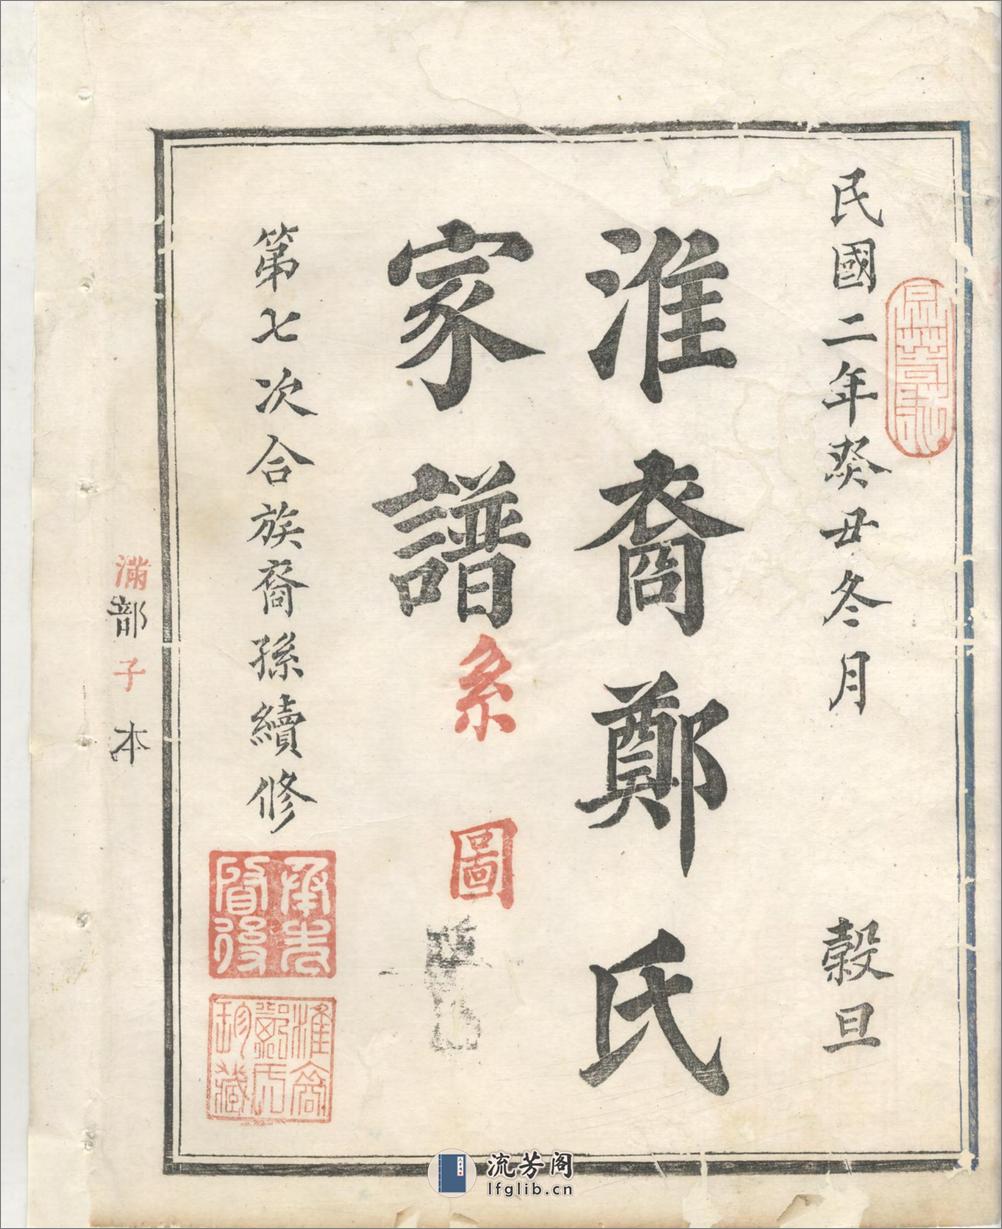 民國二年癸丑冬月 穀旦
淮裔鄭氏
家譜系圖
第七次合族裔孫續修
承先啓後
淮裔鄭氏珍藏
滿部子本
流芳阁
lfglib.cn